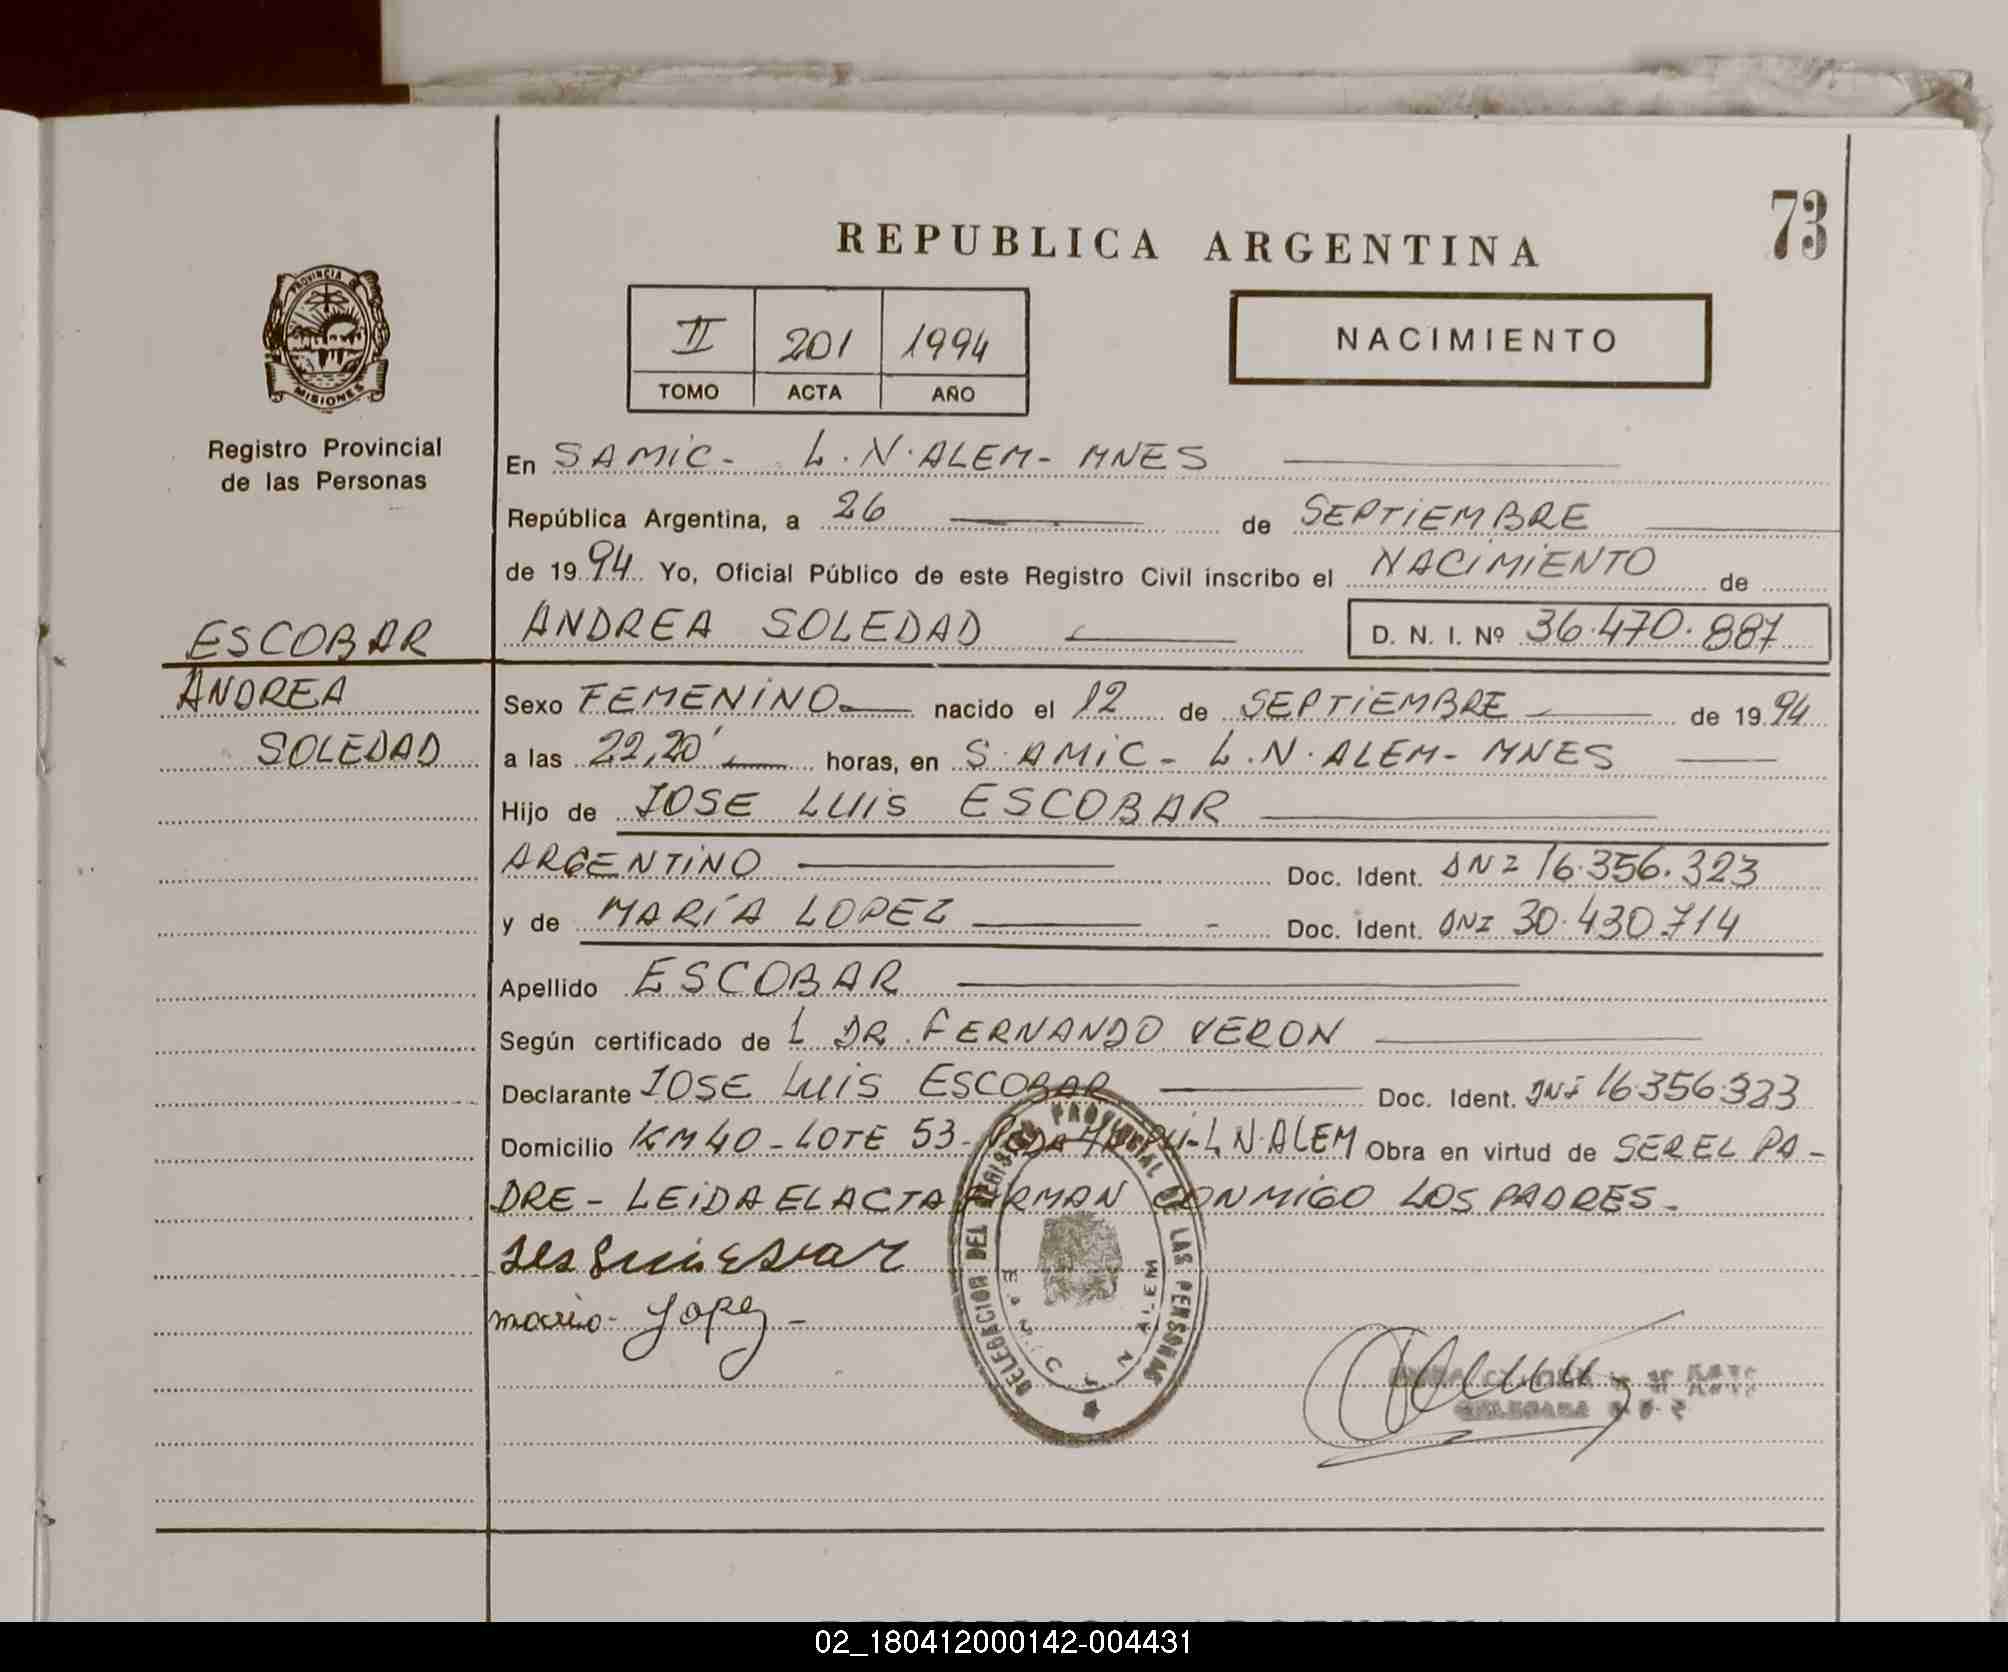 73
REPUBLICA ARGENTINA
PROVINCIA
MISIONES
Registro Provincial
de las Personas
II 201 1994
TOMO ACTA AÑO
NACIMIENTO
En SAMIC - L. N. ALEM - MNES
República Argentina, a 26 de SEPTIEMBRE
de 1994 Yo, Oficial Público de este Registro Civil inscribo el NACIMIENTO de
ESCOBAR
ANDREA SOLEDAD D. N. I. Nº 36.470.887
ANDREA
SOLEDAD
Sexo FEMENINO nacido el 12 de SEPTIEMBRE de 1994
a las 22,20' horas, en SAMIC - L. N. ALEM - MNES
Hijo de JOSE LUIS ESCOBAR
ARGENTINO Doc. Ident. DNI 16.356.323
y de MARÍA LOPEZ - Doc. Ident. DNI 30.430.714
Apellido ESCOBAR
Según certificado de L DR. FERNANDO VERON
Declarante JOSE LUIS ESCOBAR Doc. Ident. DNI 16.356.323
Domicilio KM 40 - LOTE 53 - L N. ALEM Obra en virtud de SER EL PA-
DRE - LEIDA EL ACTA FIRMAN CONMIGO LOS PADRES -
maria Lopez -
DELEGACION DEL REGISTRO PROVINCIAL DE LAS PERSONAS
ALEM
02_180412000142-004431